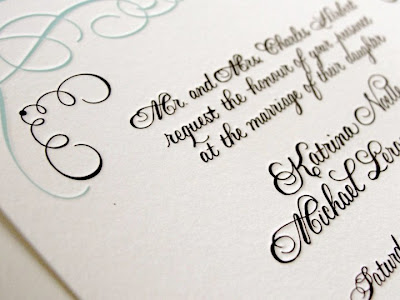 Mr. and Mrs. Charles Herbert
request the honour of your presence
at the marriage of their daughter
Katrina
Michael